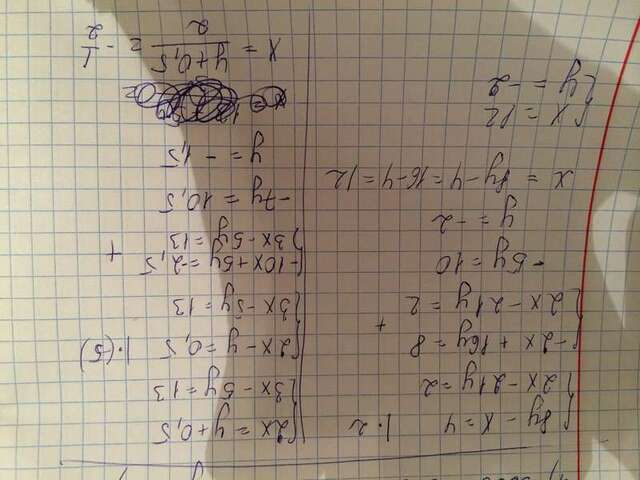 {8y - x = 4 |·2
{2x - 21y = 2
{-2x + 16y = 8
+
{2x - 21y = 2
-5y = 10
y = -2
x = 8y - 4 = 16 - 4 = 12
{x = 12
{y = -2
{2x = y + 0,5
{3x - 5y = 13
{2x - y = 0,5 |·(-5)
{3x - 5y = 13
{-10x + 5y = -2,5
+
{3x - 5y = 13
-7y = 10,5
y = -1,5
x = (y + 0,5)/2 = -1/2